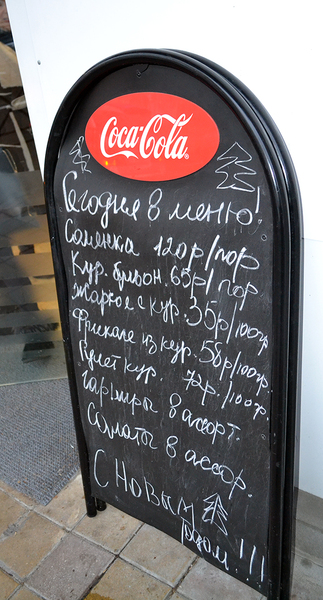 Coca-Cola
Сегодня в меню!
Солянка 120р/пор
Кур. бульон. 65р/пор
Жаркое с кур. 35р/100гр
Фрикасе из кур. 58р/100гр.
Рулет кур. 72р./100гр
Гарниры в ассорт.
Салаты в ассор.
С Новым
годом!!!